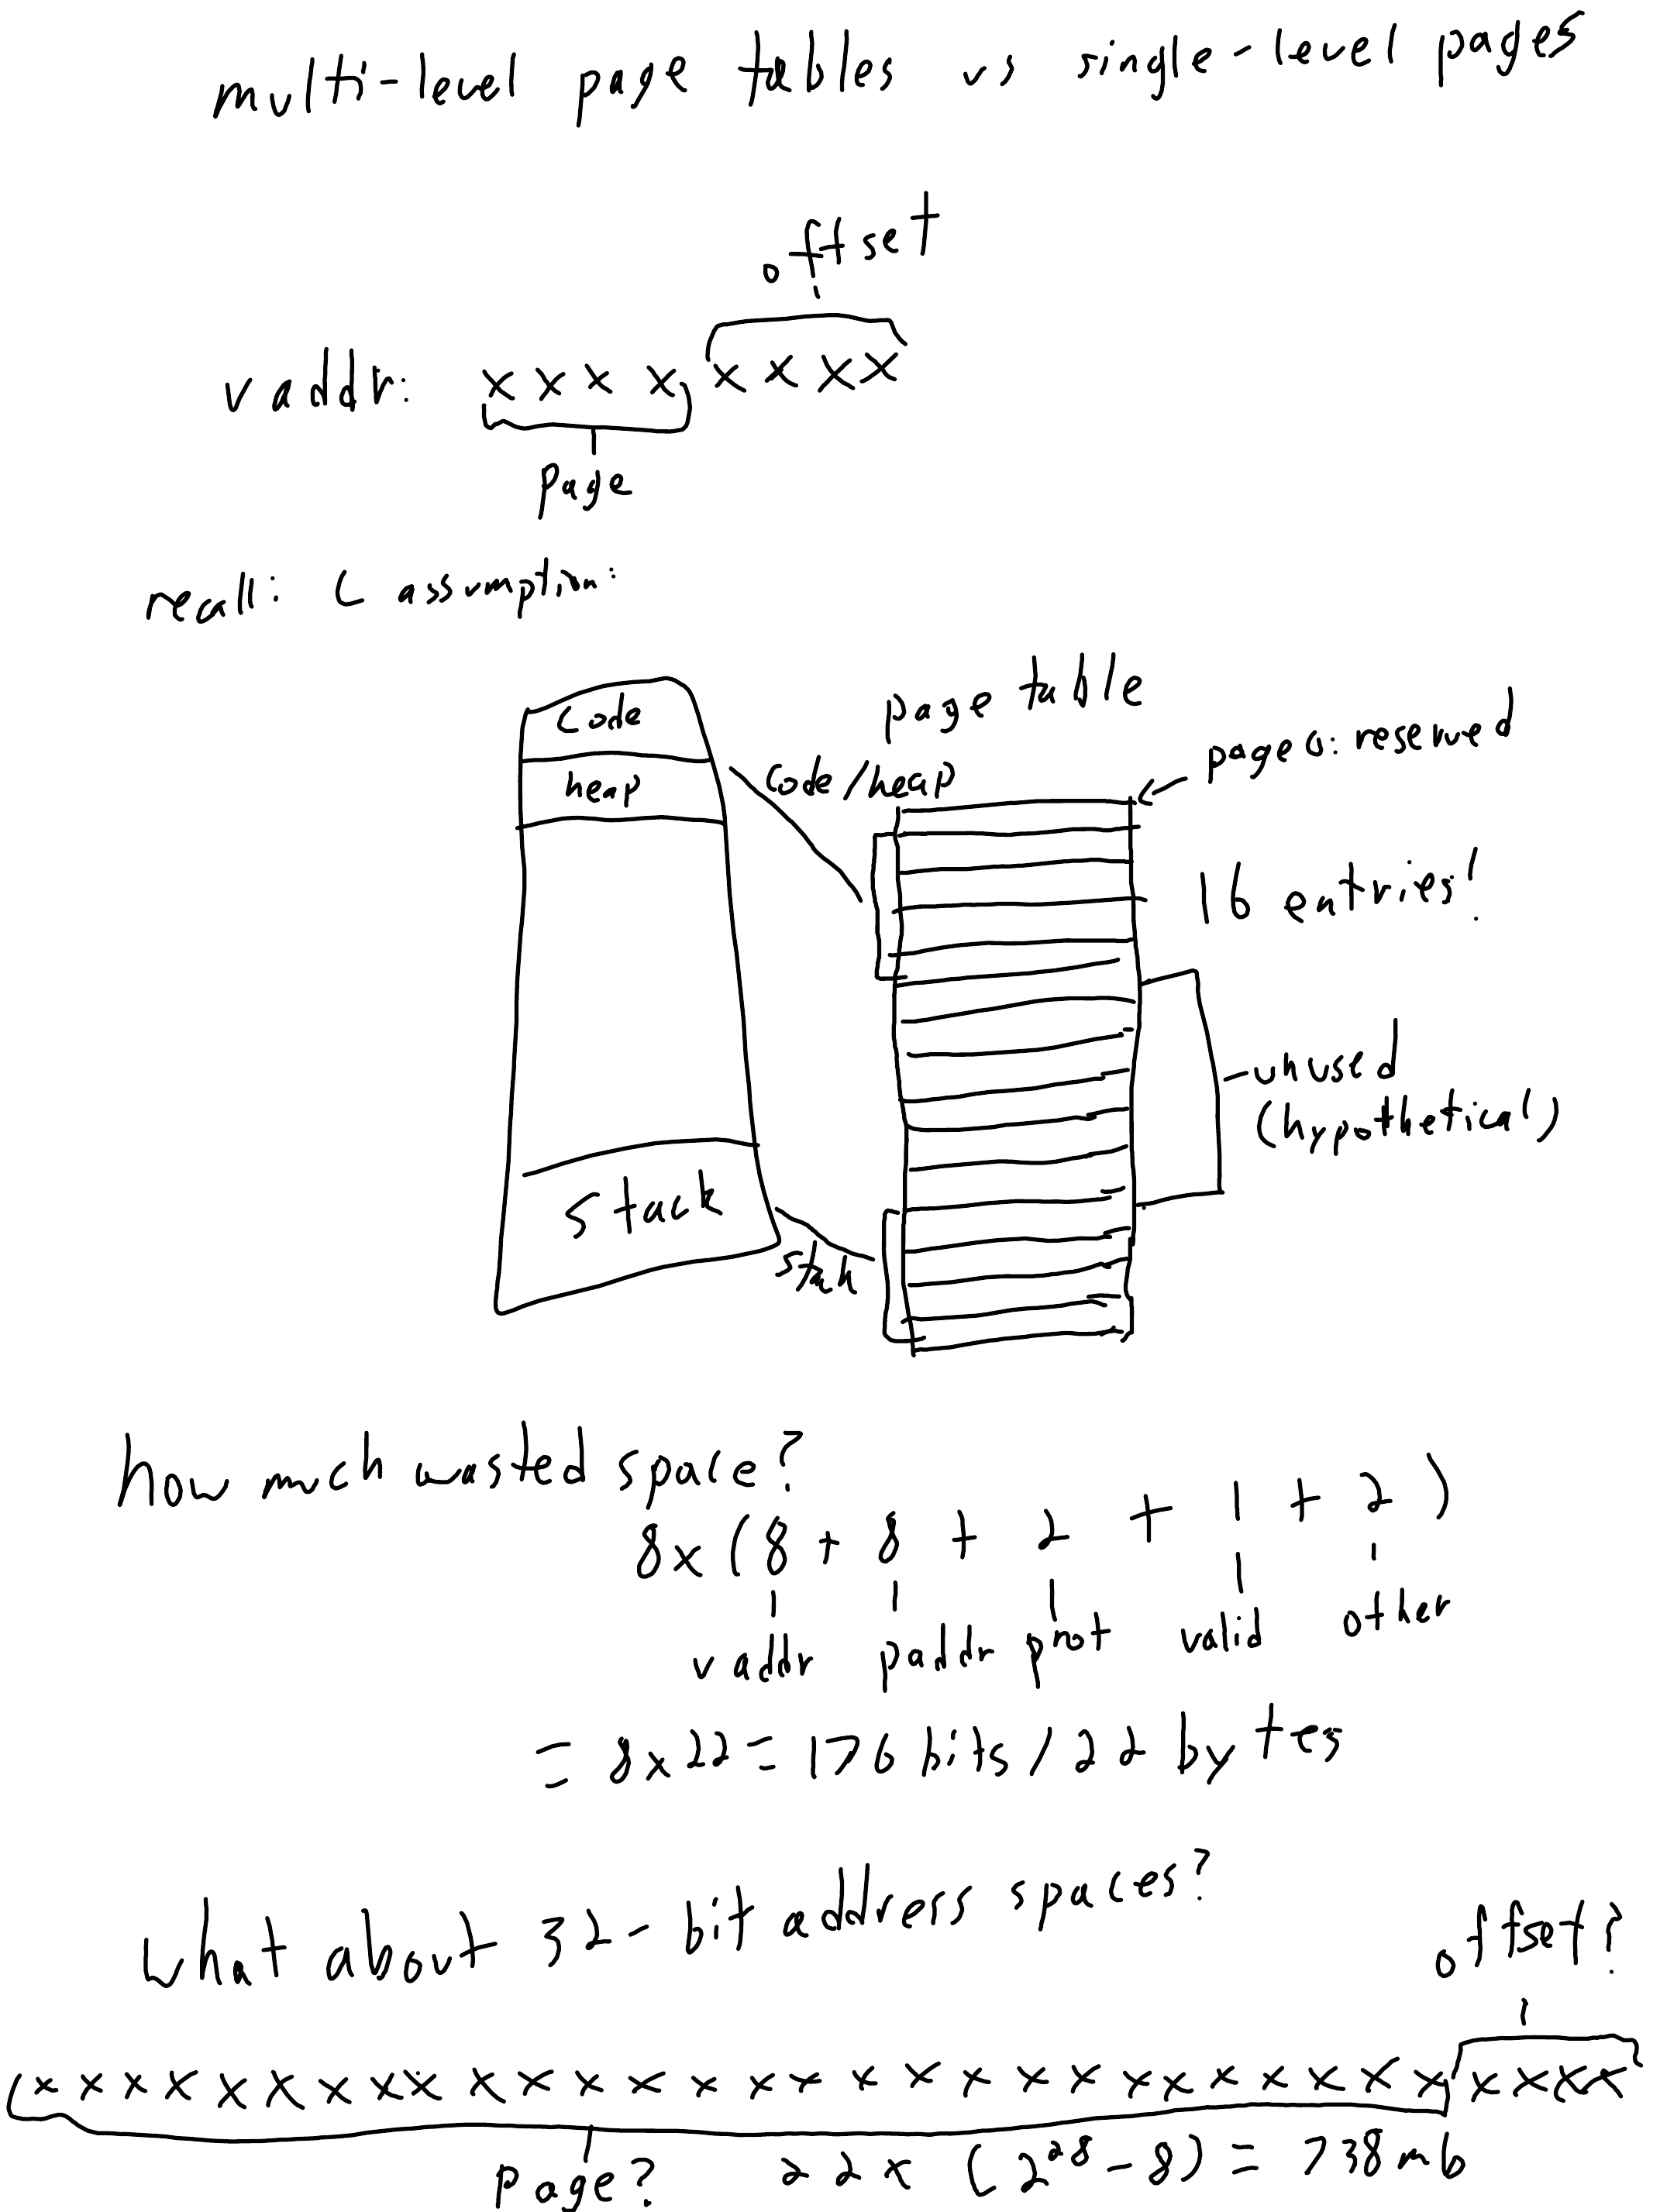 multi-level page tables vs single-level pages
offset
vaddr: x x x x x x x x
page
recall: C assumption:
code
heap
stack
page table
code/heap
page 0: reserved
16 entries!
unused
(hypothetical)
stack
how much wasted space?
8x (8 + 8 + 2 + 1 + 2)
vaddr paddr prot valid other
= 8x22 = 176 bits / 22 bytes
what about 32-bit address spaces?
offset?
x x x x x x x x x x x x x x x x x x x x x x x x x x x x x x x x
page?
22x (2^28 - 8) = 738mb